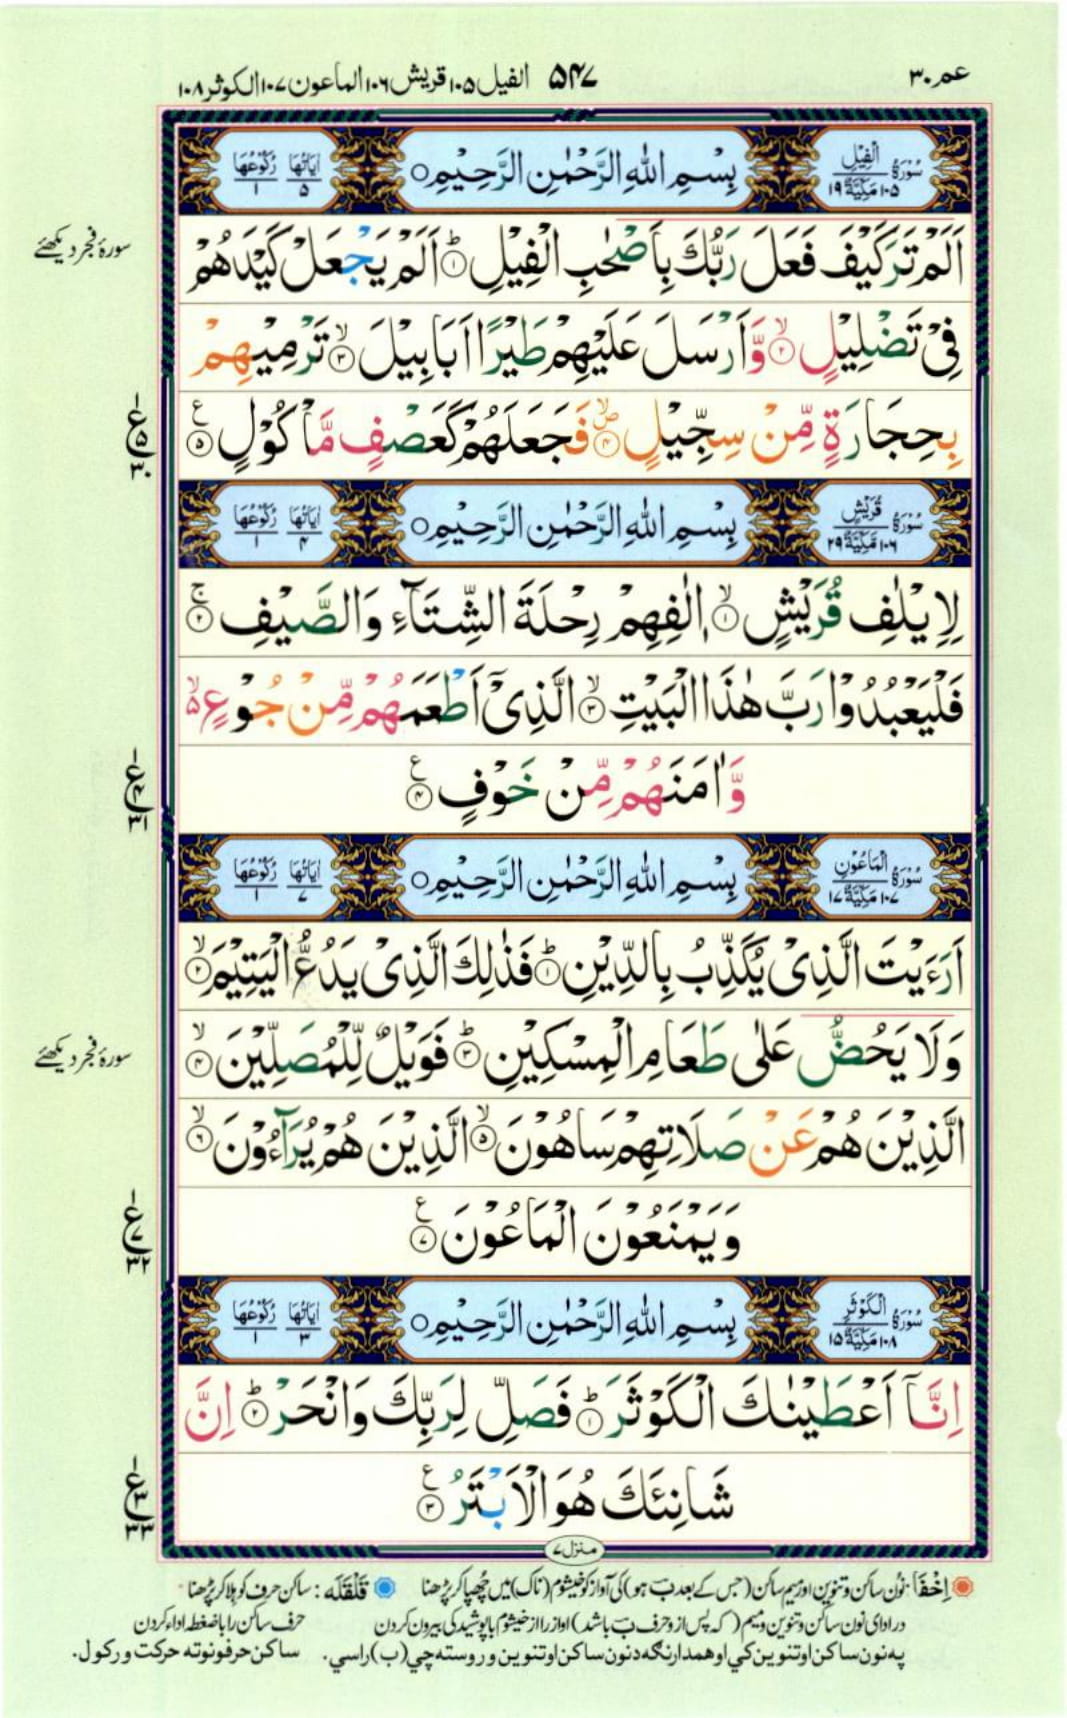 عم ٣٠ ۵۴۷ الفیل ١٠٥ قریش ١٠٦ الماعون ١٠٧ الکوثر ١٠٨
سُوْرَةُ الْفِيْلِ ١٠٥ مَكِّيَّةٌ ١٩ بِسْمِ اللّٰهِ الرَّحْمٰنِ الرَّحِيْمِ ○ اٰيَاتُهَا ٥ رُكُوْعُهَا ١
اَلَمْ تَرَ كَيْفَ فَعَلَ رَبُّكَ بِاَصْحٰبِ الْفِيْلِ ؕ ﴿١﴾ اَلَمْ يَجْعَلْ كَيْدَهُمْ
سورۂ فجر دیکھئے
فِيْ تَضْلِيْلٍ ۙ ﴿٢﴾ وَّاَرْسَلَ عَلَيْهِمْ طَيْرًا اَبَابِيْلَ ۙ ﴿٣﴾ تَرْمِيْهِمْ
بِحِجَارَةٍ مِّنْ سِجِّيْلٍ ۪ۙ ﴿٤﴾ فَجَعَلَهُمْ كَعَصْفٍ مَّاْكُوْلٍ ﴿٥﴾ ع
١ ع ٥ ٣٠
سُوْرَةُ قُرَيْشٍ ١٠٦ مَكِّيَّةٌ ٢٩ بِسْمِ اللّٰهِ الرَّحْمٰنِ الرَّحِيْمِ ○ اٰيَاتُهَا ۴ رُكُوْعُهَا ١
لِاِيْلٰفِ قُرَيْشٍ ۙ ﴿١﴾ اٖلٰفِهِمْ رِحْلَةَ الشِّتَآءِ وَالصَّيْفِ ۚ ﴿٢﴾
فَلْيَعْبُدُوْا رَبَّ هٰذَا الْبَيْتِ ۙ ﴿٣﴾ الَّذِيْٓ اَطْعَمَهُمْ مِّنْ جُوْعٍ ۙ۬
وَّاٰمَنَهُمْ مِّنْ خَوْفٍ ﴿۴﴾ ع
١ ع ۴ ٣١
سُوْرَةُ الْمَاعُوْنِ ١٠٧ مَكِّيَّةٌ ١٧ بِسْمِ اللّٰهِ الرَّحْمٰنِ الرَّحِيْمِ ○ اٰيَاتُهَا ٧ رُكُوْعُهَا ١
اَرَءَيْتَ الَّذِيْ يُكَذِّبُ بِالدِّيْنِ ؕ ﴿١﴾ فَذٰلِكَ الَّذِيْ يَدُعُّ الْيَتِيْمَ ۙ ﴿٢﴾
وَلَا يَحُضُّ عَلٰى طَعَامِ الْمِسْكِيْنِ ؕ ﴿٣﴾ فَوَيْلٌ لِّلْمُصَلِّيْنَ ۙ ﴿۴﴾
سورۂ فجر دیکھئے
الَّذِيْنَ هُمْ عَنْ صَلَاتِهِمْ سَاهُوْنَ ۙ ﴿۵﴾ الَّذِيْنَ هُمْ يُرَآءُوْنَ ۙ ﴿۶﴾
وَيَمْنَعُوْنَ الْمَاعُوْنَ ﴿٧﴾ ع
١ ع ٧ ٣٢
سُوْرَةُ الْكَوْثَرِ ١٠٨ مَكِّيَّةٌ ١٥ بِسْمِ اللّٰهِ الرَّحْمٰنِ الرَّحِيْمِ ○ اٰيَاتُهَا ٣ رُكُوْعُهَا ١
اِنَّآ اَعْطَيْنٰكَ الْكَوْثَرَ ؕ ﴿١﴾ فَصَلِّ لِرَبِّكَ وَانْحَرْ ؕ ﴿٢﴾ اِنَّ
شَانِئَكَ هُوَ الْاَبْتَرُ ﴿٣﴾ ع
١ ع ٣ ٣٣
منزل ٧
اِخْفَا: نون ساکن وتنوین اور میم ساکن (جس کے بعد ب ہو) کی آواز کو خیشوم (ناک) میں چھپا کر پڑھنا قَلْقَلَه: ساکن حرف کو ہلا کر پڑھنا
در ادای نون ساکن وتنوین ومیم (که پس از و حرف ب باشد) آواز را از خیشوم با پوشیدگی بیرون کردن حرف ساکن را با ضغطه اداء کردن
په نون ساکن او تنوین کي او همدارنگه د نون ساکن او تنوین وروسته چي (ب) راسي. ساکن حرفو نو ته حرکت ورکول.